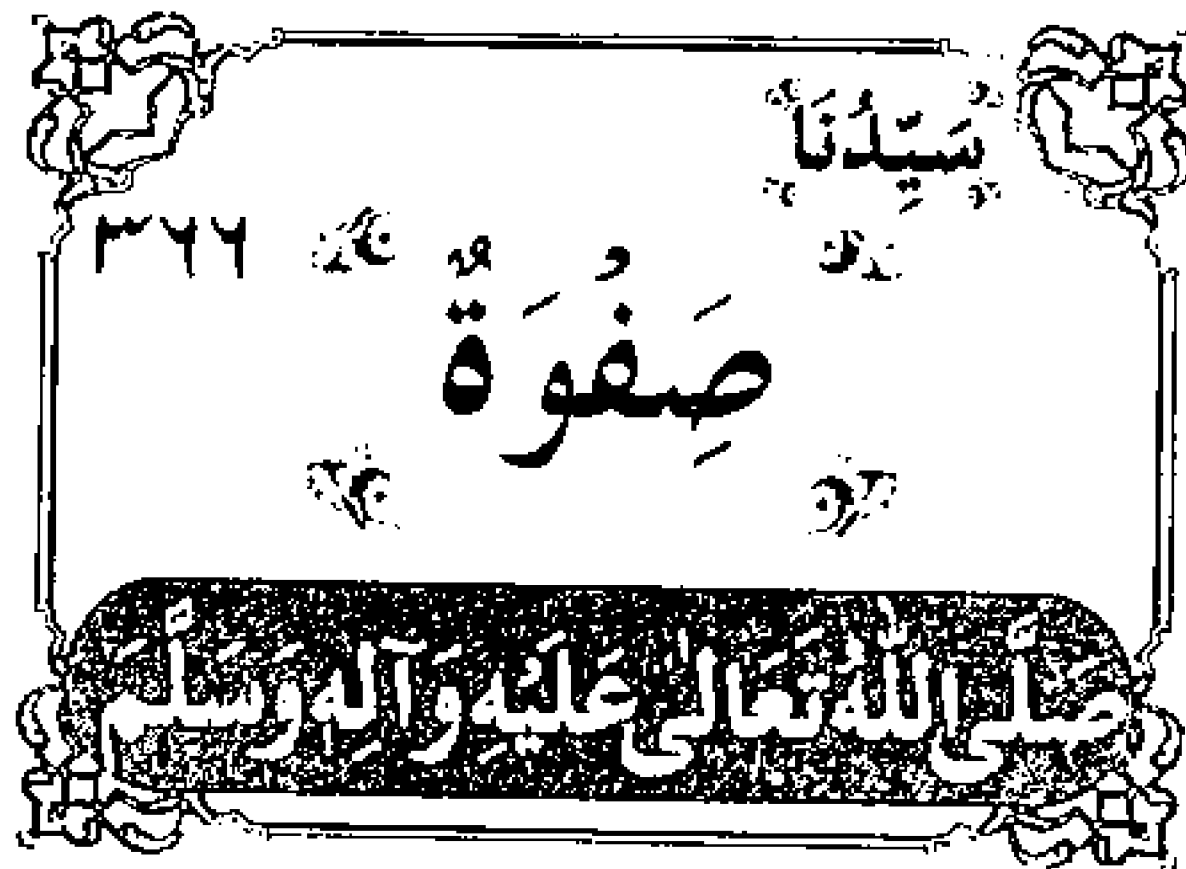 سَيِّدُنَا
٣٦٦
صَِفُوَةٌ
صَلَّى اللهُ تَعَالٰى عَلَيْهِ وَآلِهِ وَسَلَّم